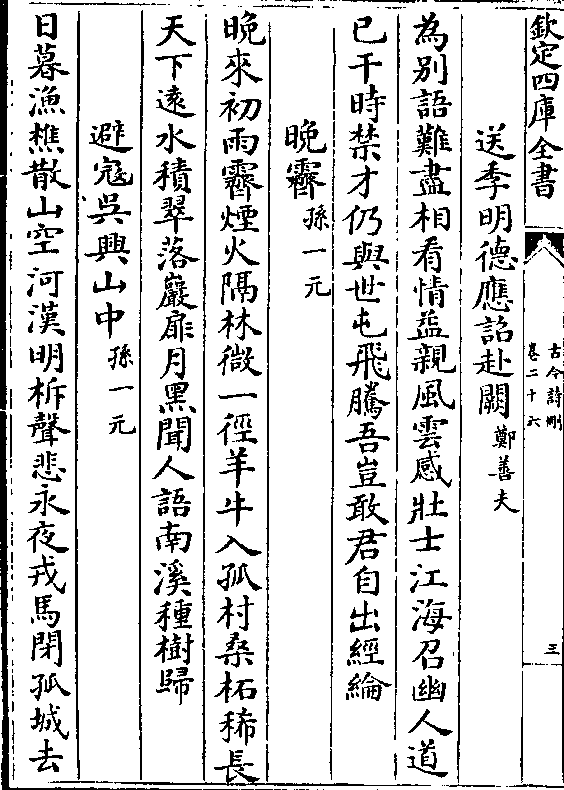 欽定四庫全書
古今詩刪
卷二十六
三
送季明德應詔赴闕 鄭善夫
為別語難盡相看情益親風雲感壯士江海召幽人道
已干時禁才仍與世屯飛騰吾豈敢君自出經綸
晚霽 孫一元
晚來初雨霽煙火隔林微一徑羊牛入孤村桑柘稀長
天下遠水積翠落巖扉月黑聞人語南溪種樹歸
避寇吳興山中 孫一元
日暮漁樵散山空河漢明柝聲悲永夜戎馬閉孤城去